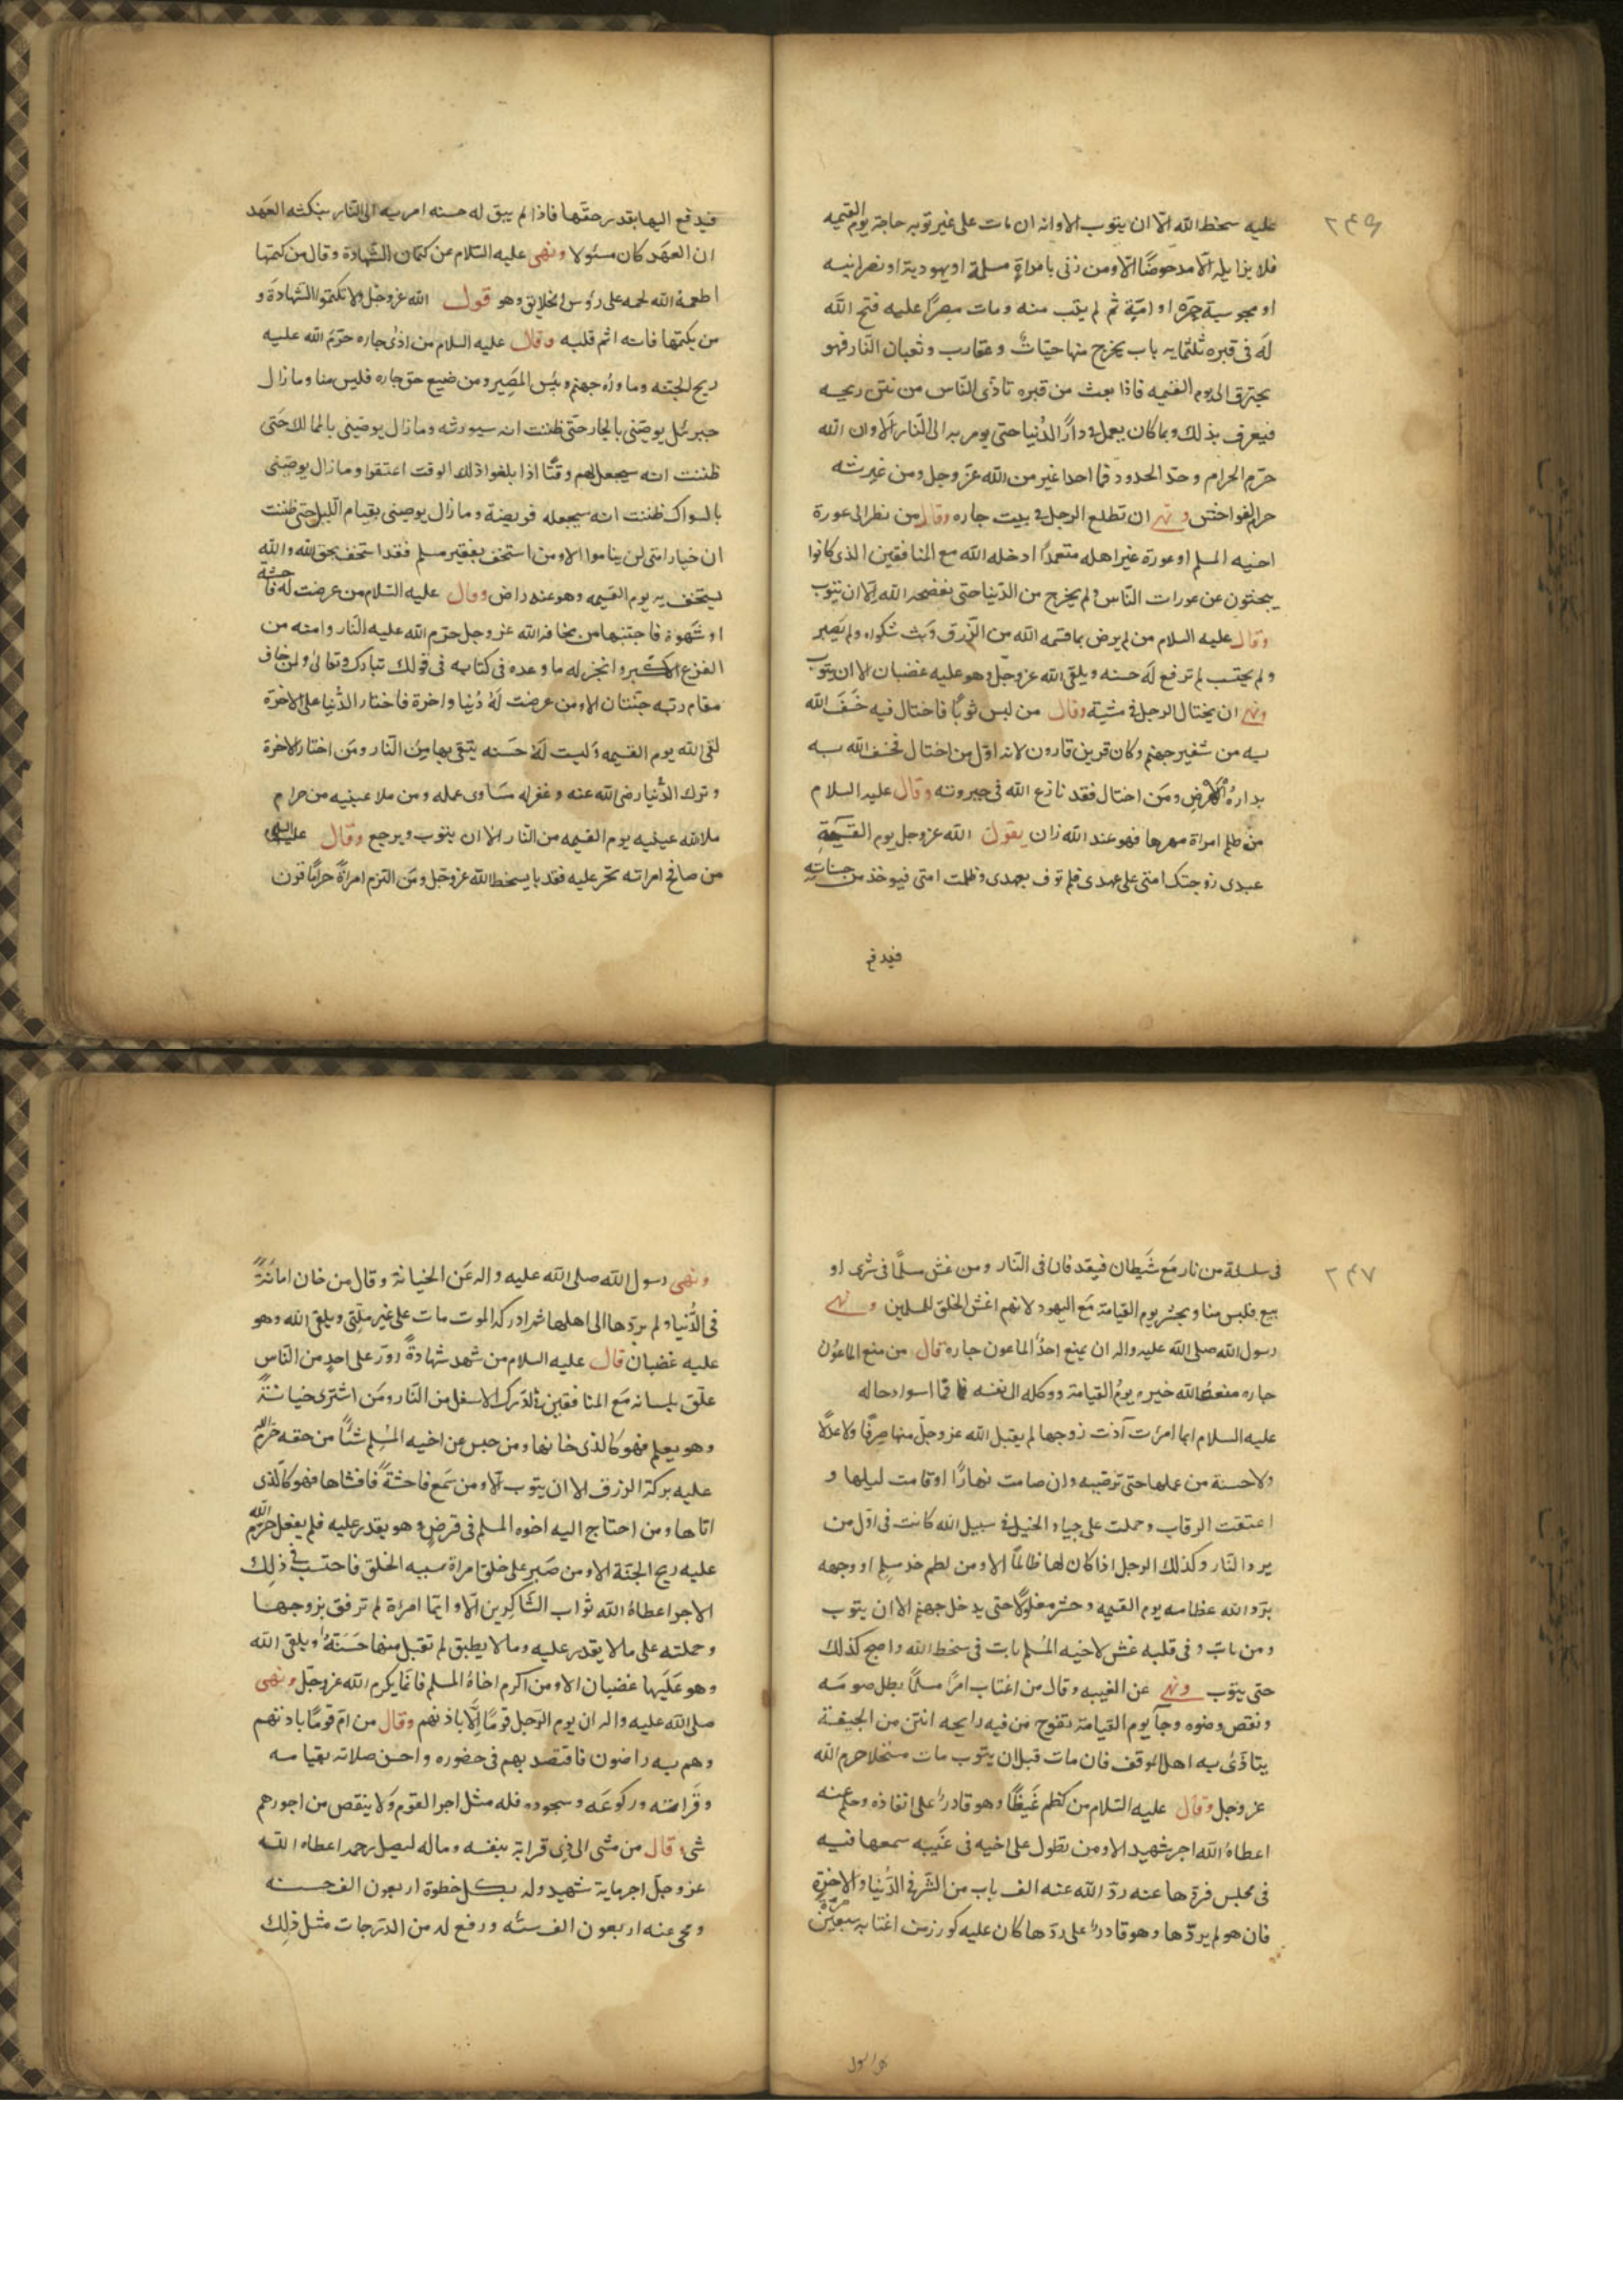 ٢٤٦
عليه سخط الله الّا ان يتوب الا وانه ان مات على غير توبه حاجته يوم القيمه
فلا يزايله الّا مدحوضًا الّا ومن زنى بامراةٍ مسلمة او يهودية او نصرانيه
او مجوسية حرّه او امَةٍ ثم لم يتب منه ومات مصرًّا عليه فتح الله
لَه فى قبره ثلثمايه باب يخرج منها حيّات وعقارب وثعبان النّار فهو
يحترق الى يوم القيمه فاذا بعث من قبره تاذّى النّاس من نتن ريحه
فيعرف بذلك وبما كان يعمل فى دار الدُّنيا حتى يومر به الى النّار الّا وان الله
حرّم الحرام وحدّ الحدود فما احدا غير من الله عزّ وجل ومن غيرته
حرم الفواحش ونهى ان تطلع الرجل فى بيت جاره وقال من نظر الى عورة
اخيه المسلم او عورة غير اهله متعمدًا ادخله الله مع المنافقين الذى كانوا
يبحثون عن عورات النّاس ولم يخرج من الدّنيا حتى يفضحه الله الّا ان يتوب
وقال عليه السلام من لم يرض بما قسمه الله من الرّزق وَبث شكواه ولم يَصبر
ولم يحتسب لم ترفع لَه حسنه ويلقى الله عز وجلّ وهو عليه غضبان الا ان يتوب
ونهى ان يختال الرجل فى مشيته وقال من لبس ثوبًا فاختال فيه خَسَفَ الله
به من شفير جهنم وكان قرين قارون لانه اوّل من اختال فخسف الله به
بداره الارض ومَن اختال فقد نازع الله فى جبروته وقال عليه السلام
من ظلم امراة مهرها فهو عند الله زان يقول الله عز وجل يوم القيمةِ
عبدى زوجتك امتى على عهدى فلم توف بعهدى وظلمت امتى فيوخذ من حسناته
فيدفع
فيدفع اليها بقدر حقّها فاذا لم يبق له حسنه امر به الى النّار بنكثه العهَد
ان العهَد كان مسئولا ونهى عليه السّلام عن كتمان الشّهادة وقال من كتمها
اطعمهُ الله لحمه على رؤس الخلايق وهو قول الله عز وجل ولا تكتموا الشّهادَة و
من يكتمها فانه اثم قلبه وقال عليه السلام من اذى جاره حرّمَ الله عليه
ريح الجنّه وماواه جهنم وبئس المصِير ومن ضيع حق جاره فليس منا وما زال
جبرئل يوصّينى بالجار حتّى ظننت انه سيورثه وما زال يوصينى بالمماليك حَتّى
ظننت انه سيجعل لهم وقتًا اذا بلغوا ذلك الوقت اعتقوا وما زال يوصّينى
بالسواك ظننت انه سيجعله فريضة وما زال يوصينى بقيام اللّيل حتى ظننت
ان خيار امتى لن يناموا الا ومن استخف بفقير مسلم فقد استخف بحق الله والله
يستخف به يوم القيمه وهو عنه راض وقال عليه السّلام من عرضت له فاحشة
او شَهوة فاجتنبها من مخافه الله عز وجل حرّم الله عليه النّار وامنه من
الفزع الاكبر وانجز له ما وعده فى كتابه فى قولك تبارك وتعالىٰ ولمن خاف
مقام ربّه جنّتان الا ومن عرضت لَهُ دُنيا واخرة فاختار الدُّنيا على الاخرَة
لقى الله يوم القيمه وَليست لَهُ حَسَنه يتقى بها مِنَ النّار ومَن اختار الاخرة
وترك الدُّنيا رضى الله عنه وغفر له مسَاوى عمله ومن ملا عينيه من حرام
ملا الله عينيه يوم القيمه من النّار الا ان يتوب ويرجع وقال عليه السلم
من صافح امراته تحر عليه فقد با بسخط الله عز وجل ومَن التزم امراةً حرامًا قرن
٢٤٧
فى سلسلة من نار مَع شَيطان فيقدفان فى النّار ومن غش مسلمًا فى شرى او
بيع فليس منا ويحشر يوم القيامة مَع اليهود لانهم اغش الخلق للمسلمين ونهى
رسول الله صلى الله عليه واله ان يمنع احدُ الماعون جاره قال من منع الماعُون
جاره منعه الله خيره يومُ القيامة ووكله الى نفسه فما اسوا حاله
عليه السلام ايما امرئت آذت زوجها لم يقبل الله عز وجلّ منها صِرفًا ولا عدلًا
ولا حسنة من عملها حتى ترضيه وان صامت نهارًا او قامت ليلها و
اعتقت الرقاب وحملت على جياد الخيل فى سبيل الله كانت فى اوّل من
يرد النّار وكذلك الرجل اذا كان لها ظالمًا الا ومن لطم خد مسلم او وجهه
بدّد الله عظامه يوم القيمه وحشر مغلولًا حتى يدخل جهنم الا ان يتوب
ومن بات وفى قلبه غش لاخيه المُسلم بات فى سخط الله واصبح كذلك
حتى يتوب ونهى عن الغيبه وقال من اغتاب امرًا مسلمًا بطل صومَه
ونقص وضوه وجاَ يوم القيامة تفوح مَن فيه رايحه انتن من الجيفة
يتاذّى به اهل الموقف فان مات قبل ان يتوب مات مستحلا حرم الله
عز وجل وقال عليه السّلام من كظم غَيظًا وهو قادرٌ على انفاذه وحلم عنه
اعطاهُ الله اجر شهيد الا ومن تطول على اخيه فى غَيبه سمعها فيه
فى مجلس فردّها عنه ردّ الله عنه الف باب من الشّر فى الدّنيا والاخرة
فان هو لم يردّها وهو قادر على ردّها كان عليه كوزر من اغتابه سبعين مرّة
ونهى رسول الله صلى الله عليه واله عَن الخيانة وقال من خان امانَةً
فى الدُّنيا ولم يردّها الى اهلها ثم ادركه الموت مات على غير ملّتى ويلقى الله وهو
عليه غضبان قال عليه السلام من شهد شهادةً زورّ على احدٍ من النّاس
علّق بلسانه مَع المنافقين فى الدّرك الاسفل من النّار ومَن اشترى خيانةً
وهو يعلم فهو كالذى خانها ومن حبس عن اخيه المُسلِم شئًا من حقه حرّم الله
عليه بركة الرزق الا ان يتوب الّا ومن سَمع فاحشةً فافشاها فهو كالّذى
اتاها ومن احتاج اليه اخوه المسلم فى قرضٍ وهو يقدر عليه فلم يفعل حرّم الله
عليه ريح الجنّة الا ومن صَبر على خلق امراة سيه الخلق فاحتسب فى ذلِك
الاجر اعطاهُ الله ثواب الشّاكِرين الّا وايّما امرئة لم ترفق بزوجها
وحملته على ما لا يقدر عليه وما لا يطيق لم تقبل منها حَسَنةً ويلقى الله
وهو عَلَيها غضبان الا ومن اكرم اخاهُ المسلم فانّما يكرم الله عز وجلّ ونهى
صلى الله عليه واله ان يوم الرّجل قومًا اِلّا باذنهم وقال من امّ قومًا باذنهم
وهم به راضون فاقتصد بهم فى حضوره واحسن صلاته بقيامه
وقَرائته وركوعَه وسجوده فله مثل اجر القوم وَلا ينقص من اجورهم
شى وقال من مشى الى ذِى قرابة بنفسه وماله ليصل رحمه اعطاه الله
عز وجلّ اجر ماية شهيد وله بكل خطوة اربعون الف حسنه
ومحى عنه اربعون الف سئه ورفع له من الدّرجات مثل ذلِك